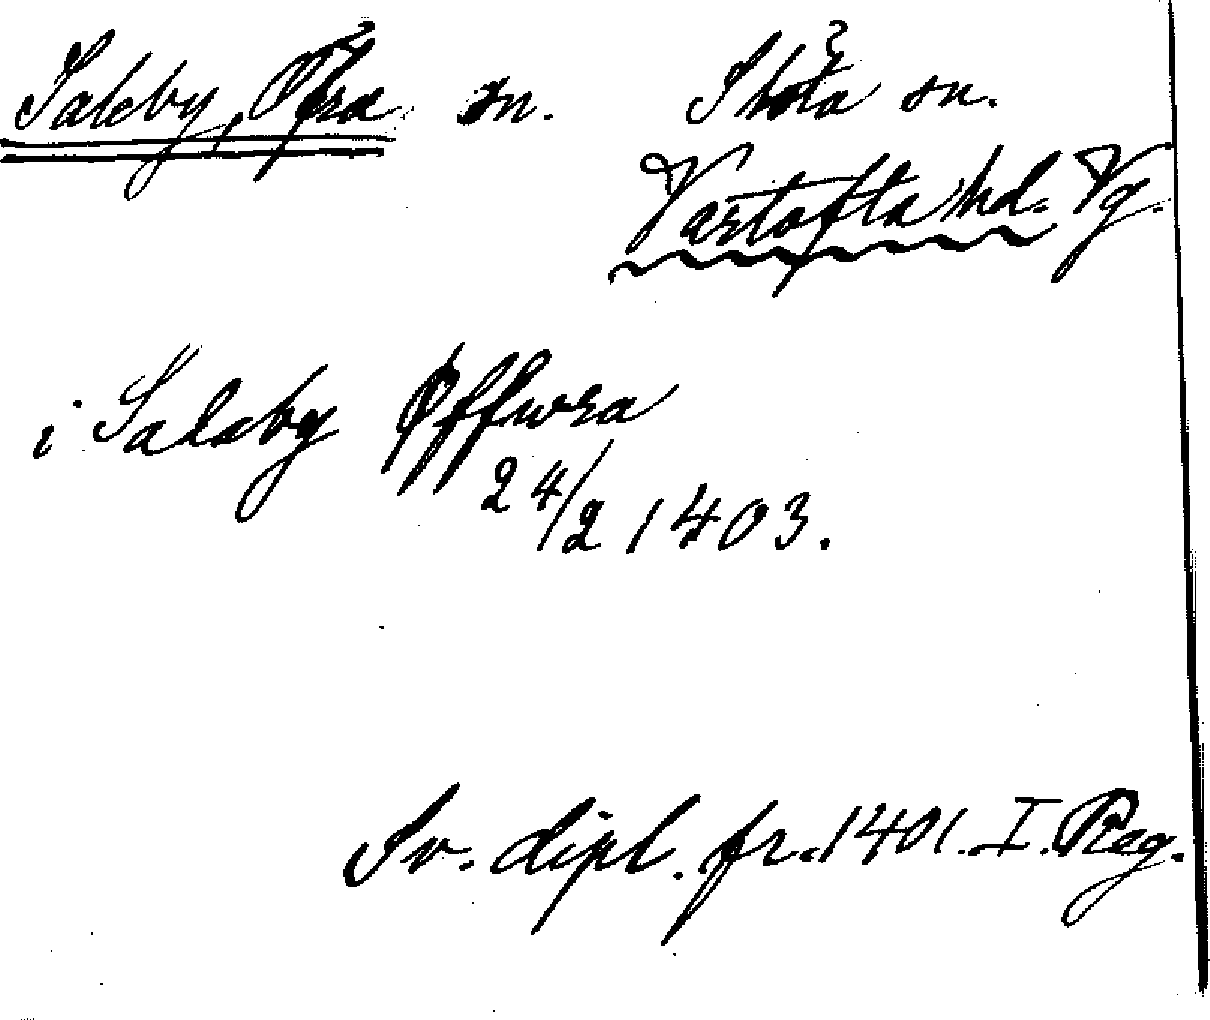 Saleby, Öfra sn. Sköta sn.
Vartofta hd. Vg.
i Salaby Øffwra
24/2 1403.
Sv. dipl. fr. 1401. I. Reg.